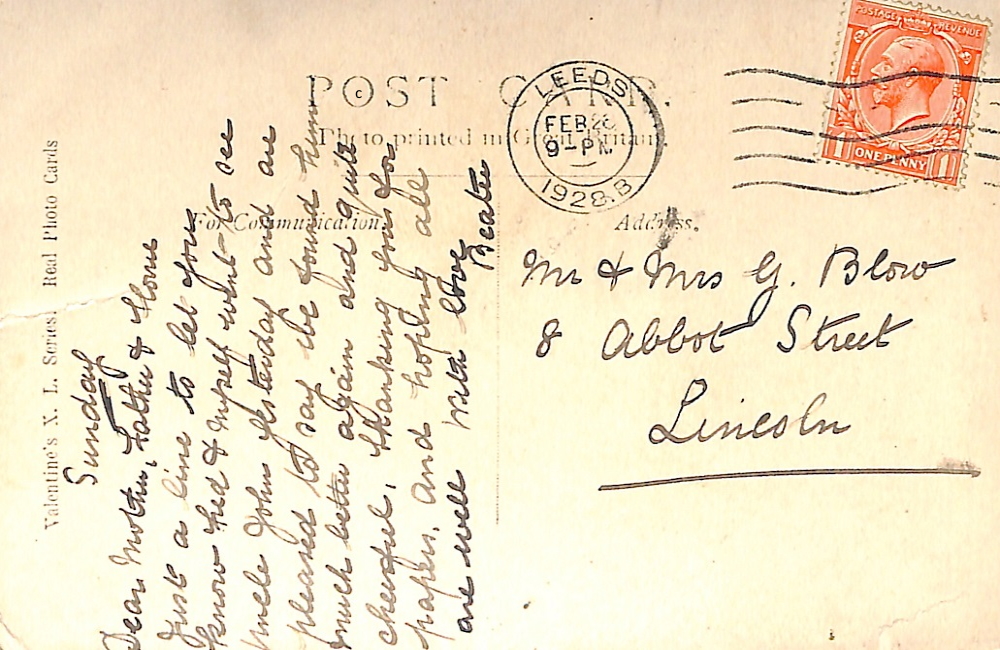 POST CARD.
Photo printed in Great Britain.
For Communication.
Address.
Valentine's X. L. Series. Real Photo Cards
LEEDS
FEB 26
9-PM
1928.B
POSTAGE REVENUE
1 ONE PENNY 1
Mr & Mrs G. Blow
8 Abbot Street
Lincoln
Sunday
Dear Mother, Father &
Just a line to let you
know Fred & myself went to see
Uncle John yesterday and are
pleased to say we found him
much better again and quite
cheerful, thanking you for
papers. And hoping all
are well With love
Beatie